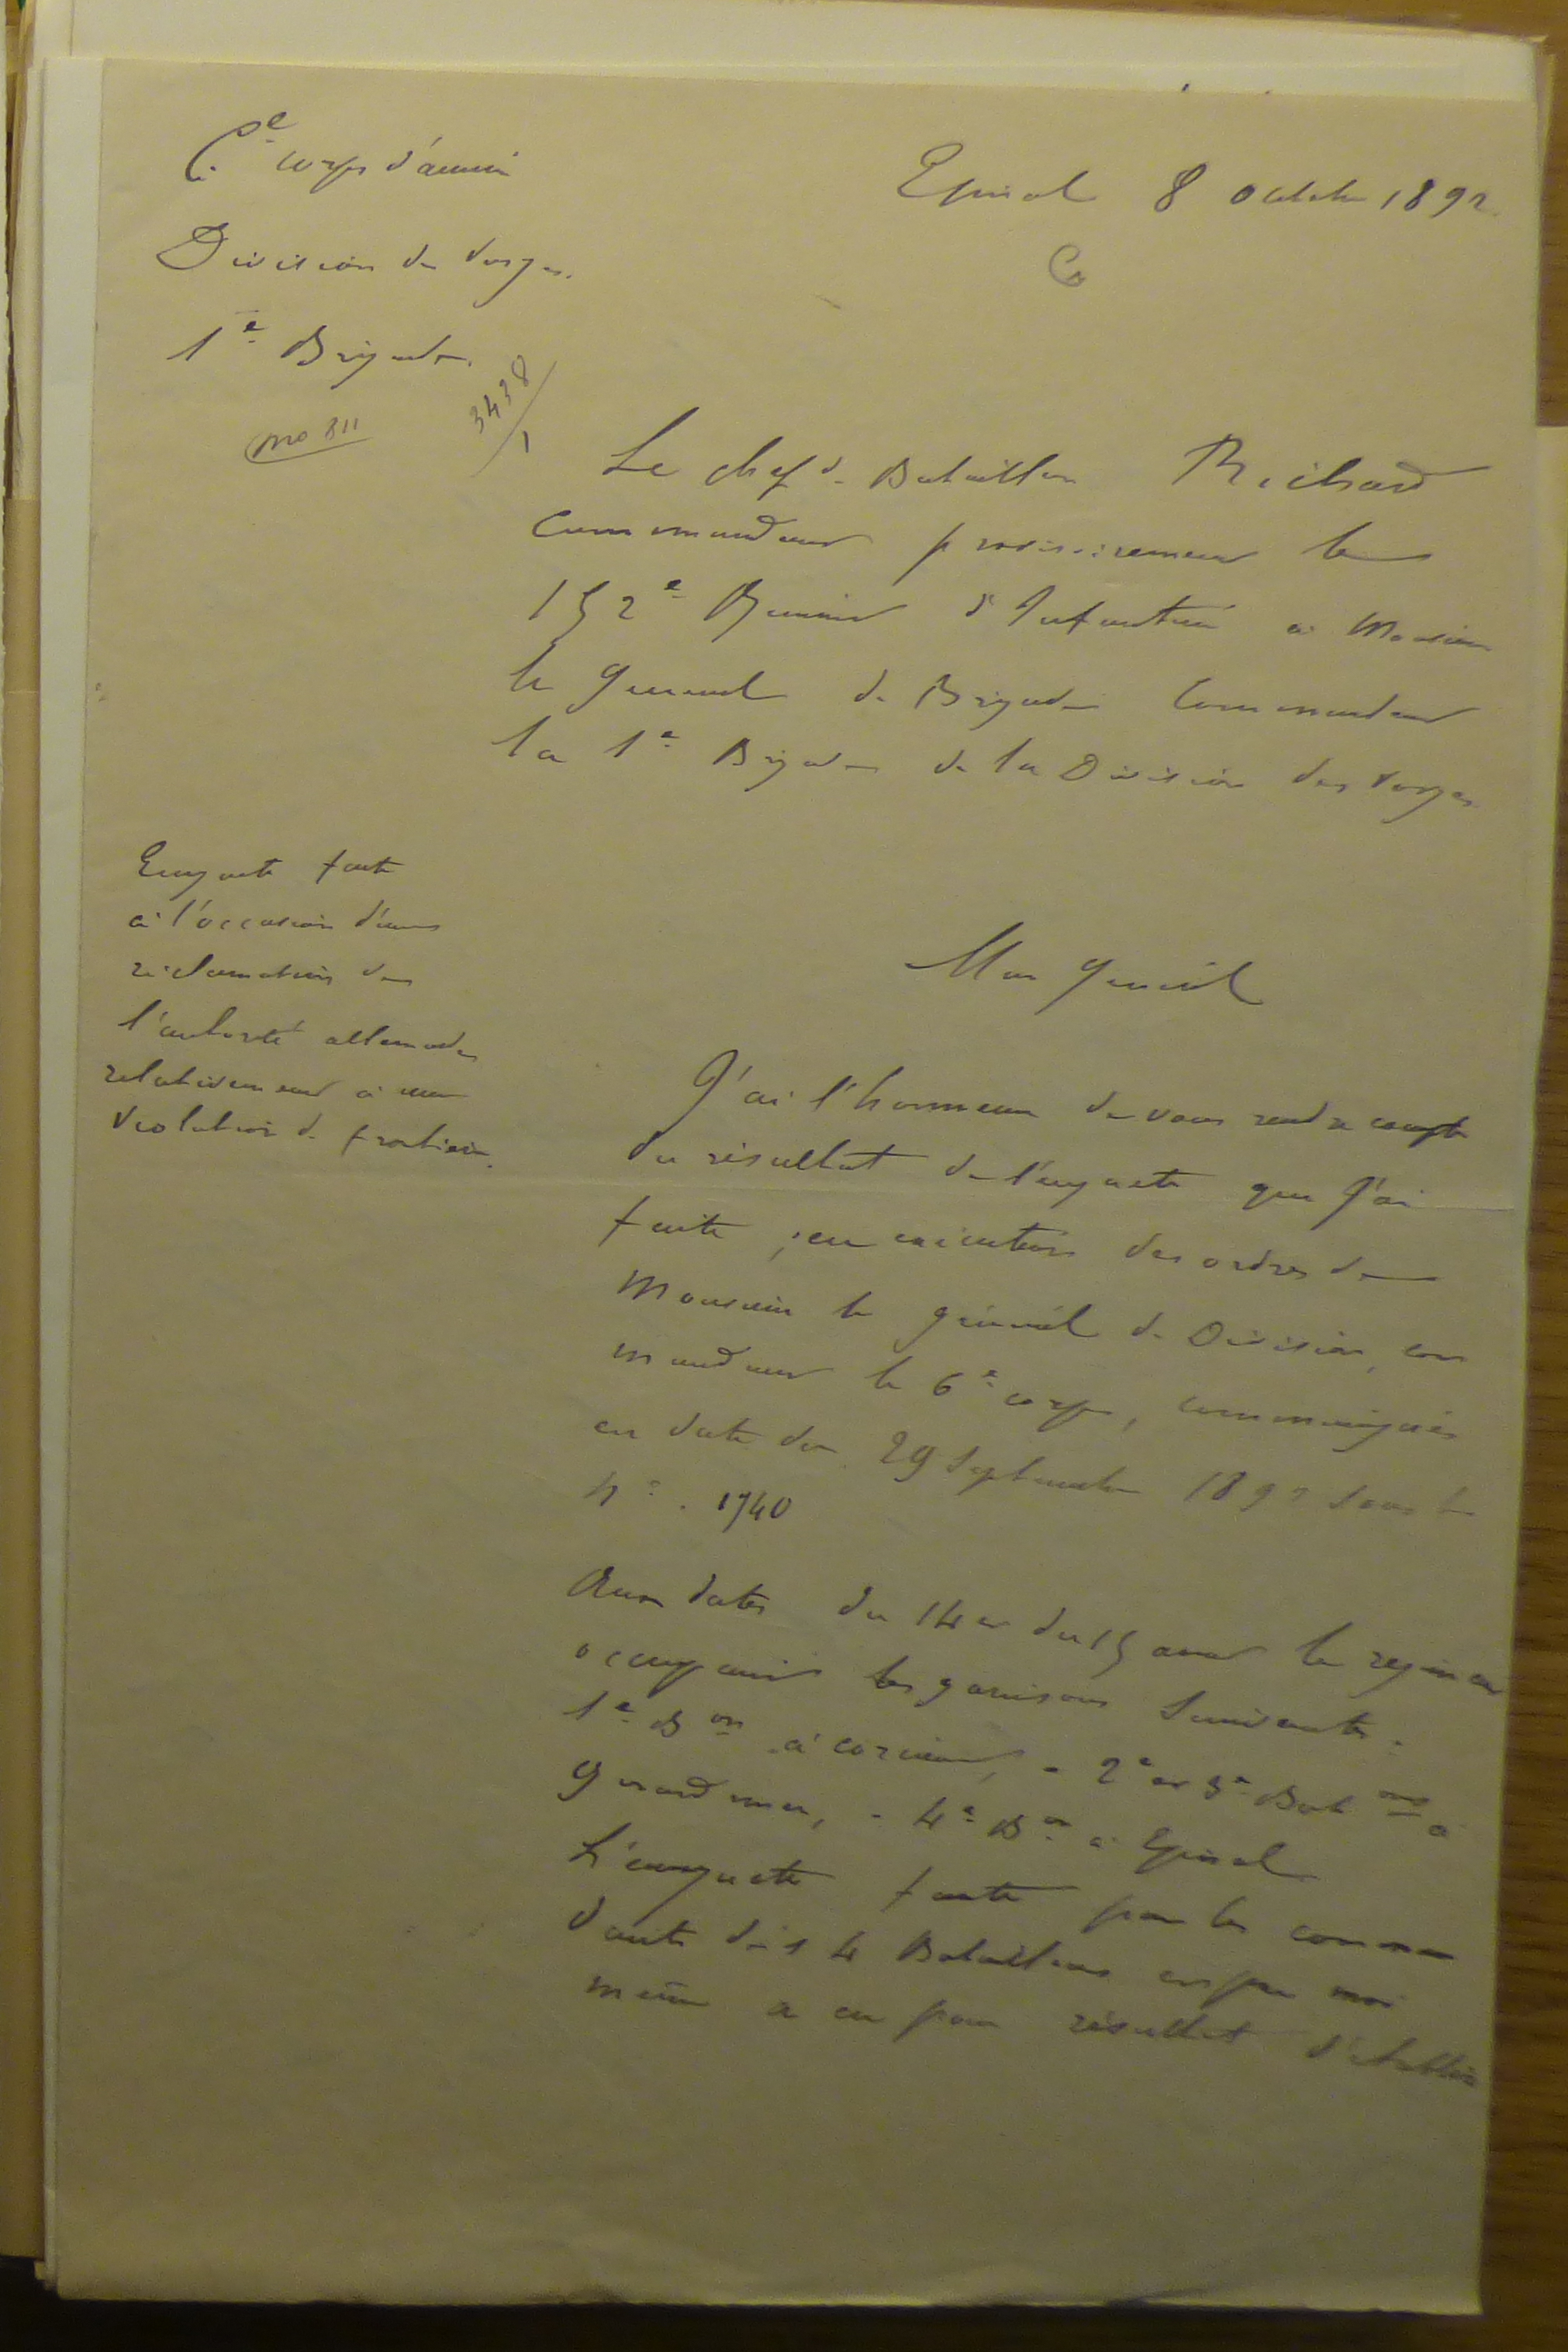 6e corps d'armée
Division des Vosges.
1e Brigade.
no 811
3438/1
Epinal 8 octobre 1892
Le chef de Bataillon Richard
commandant provisoirement le
152e Régiment d'Infanterie à Monsieur
le Général de Brigade Commandant
la 1e Brigade de la Division des Vosges
Enquête faite
à l'occasion d'une
réclamation de
l'autorité allemande
relativement à une
violation de frontière.
Mon Général
J'ai l'honneur de vous rendre compte
du résultat de l'enquête que j'ai
faite, en exécution des ordres de
Monsieur le général de Division, com
mandant le 6e corps, communiqués
en date du 29 Septembre 1892 sous le
No. 1740
Aux dates du 14 et du 15 août le régiment
occupait les garnisons suivantes:
1e Bon à Corcieux, - 2e et 3e Batons à
Gérardmer, - 4e Bon à Epinal
L'enquête faite par les comman
dants des 4 Bataillons et par moi
même a eu pour résultat d'établir